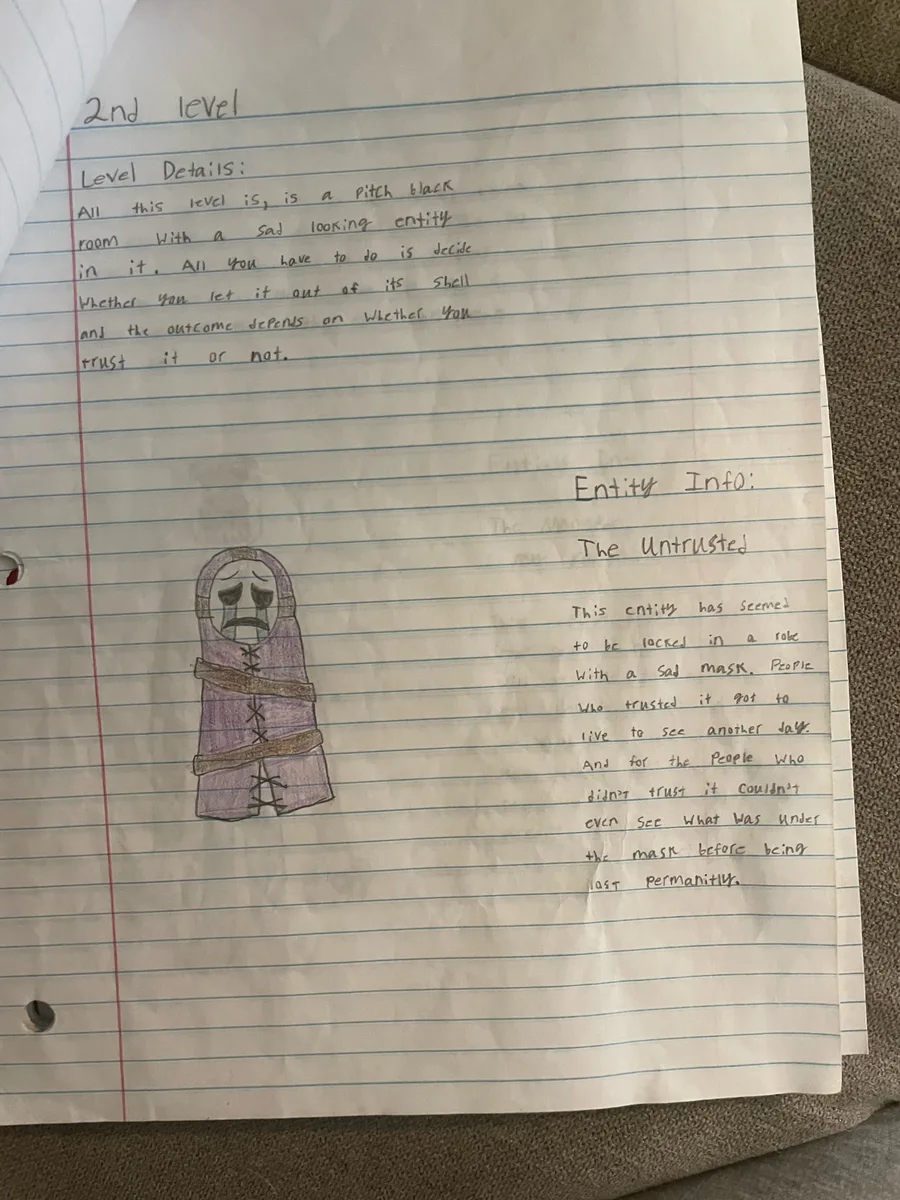 2nd level
Level Details:
All this level is, is a pitch black
room with a sad looking entity
in it. All you have to do is decide
whether you let it out of its shell
and the outcome depends on whether you
trust it or not.
Entity Info:
The Untrusted
This entity has seemed
to be locked in a robe
with a sad mask. People
who trusted it got to
live to see another day.
And for the people who
didn't trust it couldn't
even see what was under
the mask before being
lost permanitly.